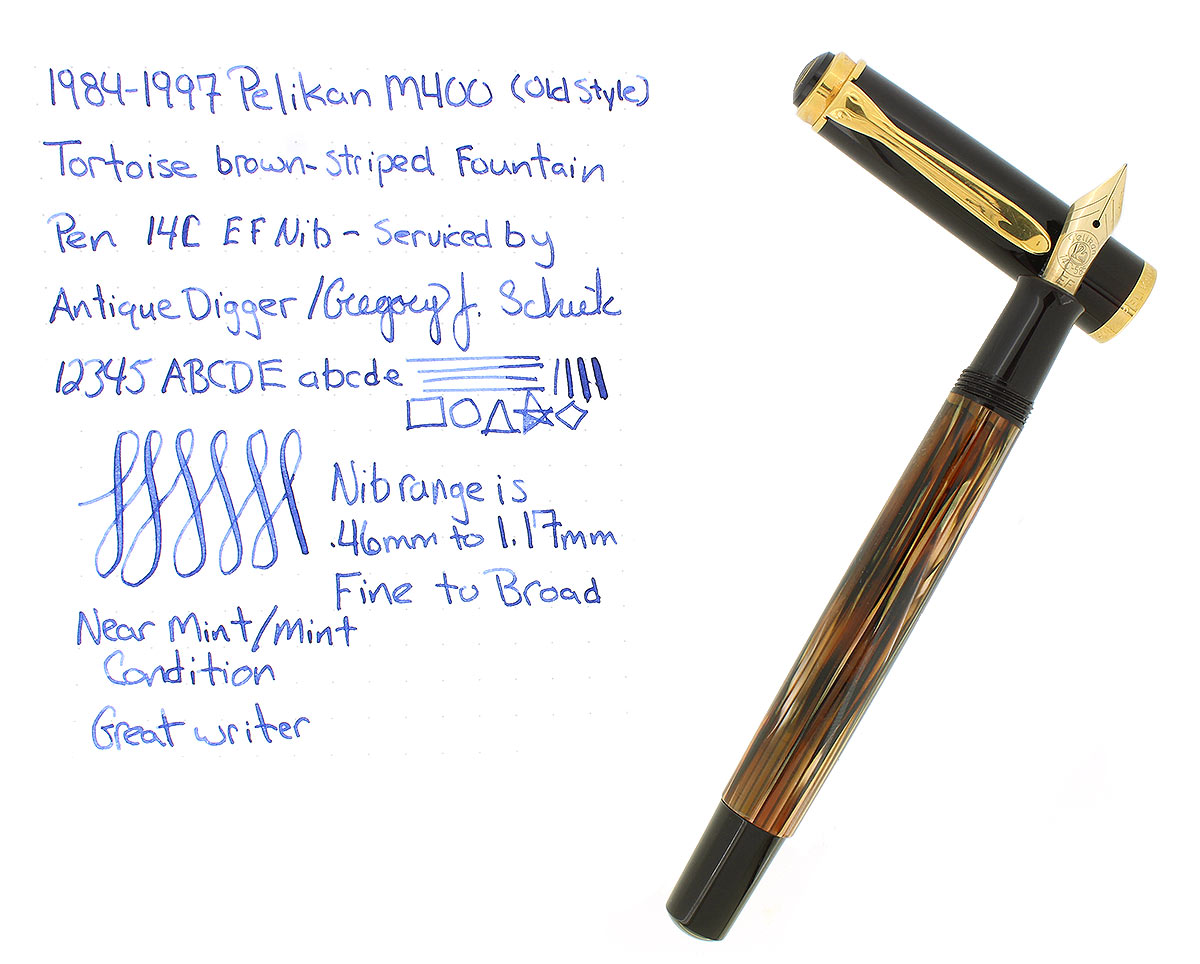 1984-1997 Pelikan M400 (Old Style)
Tortoise brown-striped Fountain
Pen 14C EF Nib - Serviced by
Antique Digger / Gregory J.
12345 ABCDE abcde
Nib range is
.46mm to 1.17mm
Fine to Broad
Near Mint/mint
Condition
Great writer